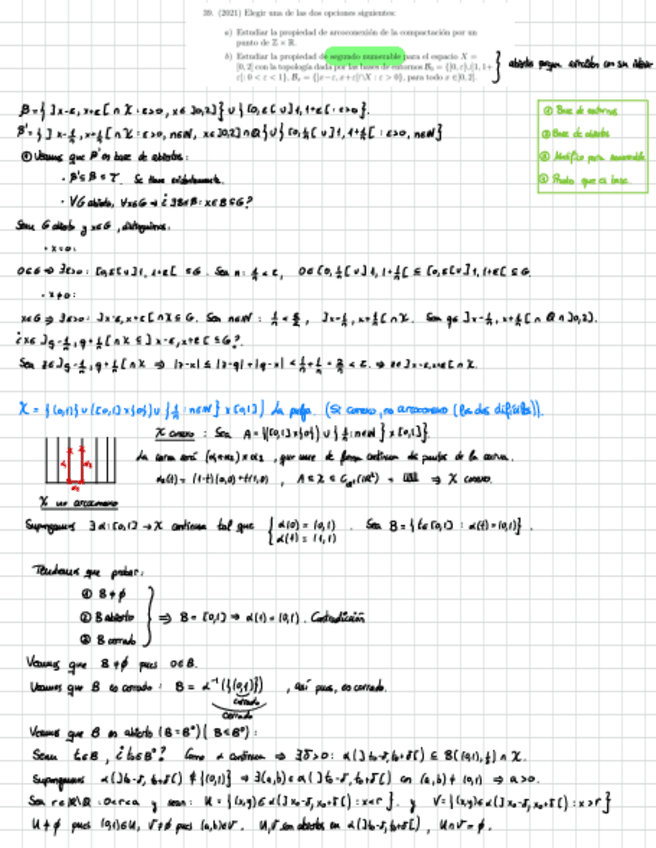 39. (2021) Elegir una de las dos opciones siguientes:
a) Estudiar la propiedad de arcoconexión de la compactación por un
punto de Z × R.
b) Estudiar la propiedad de segundo numerable para el espacio X =
[0,2[ con la topología dada por las bases de entornos
abiertos
① Base de entornos
② Base de abiertos
③ Modifico para numerable
④ Pruebo que es base.
① Veamos que β' es base de abiertos:
· β' ⊆ β ⊆ τ. Se tiene evidentemente.
· ∀G abierto, ∀x∈G ⇒ ¿∃B∈β: x∈B⊆G?
Sean G abierto y x∈G, distinguimos:
· x=0:
0∈G ⇒ ∃ε>0: [0,ε[ ∪ ]1, 1+ε[ ⊆ G. Sea n: 1/n < ε, 0∈[0,1/n[ ∪ ]1, 1+1/n[ ⊆ [0,ε[ ∪ ]1, 1+ε[ ⊆ G.
· x≠0:
x∈G ⇒ ∃ε>0: ]x-ε, x+ε[ ∩ X ⊆ G. Sea n∈N: 1/n < ε/2, ]x-1/n, x+1/n[ ∩ X. Sea q∈ ]x-1/n, x+1/n[ ∩ Q ∩ ]0,2[.
¿x∈ ]q-1/n, q+1/n[ ∩ X ⊆ ]x-ε, x+ε[ ⊆ G?
Sea z∈ ]q-1/n, q+1/n[ ∩ X ⇒ |z-x| ≤ |z-q|+|q-x| < 1/n+1/n = 2/n < ε. ⇒ z∈ ]x-ε, x+ε[ ∩ X.
X = {(0,1)} ∪ ([0,1]×{0}) ∪ {1/n : n∈N} × [0,1] La pulga. (Sí conexo, no arcoconexo (las dos difíciles)).
X conexo: Sea A = ([0,1]×{0}) ∪ {1/n : n∈N} × [0,1].
La curva será, que une de forma continua dos puntos de la curva.
⇒ X conexo.
X no arcoconexo
Supongamos ∃ α: [0,1] → X continua tal que { α(0) = (0,1) . Sea B = {t∈[0,1] : α(t) = (0,1)}.
α(1) = (1,1)
Tendremos que probar:
① B ≠ ∅
② B abierto ⇒ B = [0,1] ⇒ α(1) = (0,1). Contradicción
③ B cerrado
Veamos que B ≠ ∅ pues 0∈B.
Veamos que B es cerrado: B = α⁻¹({(0,1)}), así pues, es cerrado.
cerrado
cerrado
Veamos que B es abierto (B=B°) (B⊆B°):
Sean t₀∈B, ¿t₀∈B°? Como α continua ⇒ ∃δ>0: α(]t₀-δ, t₀+δ[) ⊆ B((0,1), ½) ∩ X.
Supongamos α(]t₀-δ, t₀+δ[) ≠ {(0,1)} ⇒ ∃(a,b)∈α(]t₀-δ, t₀+δ[) con (a,b) ≠ (0,1) ⇒ a>0.
Sea r∈R\Q : 0<r<a y sean: U = {(x,y)∈α(]x₀-δ, x₀+δ[) : x<r} y V = {(x,y)∈α(]x₀-δ, x₀+δ[) : x>r}
U ≠ ∅ pues (0,1)∈U, V ≠ ∅ pues (a,b)∈V. U, V son abiertos en α(]t₀-δ, t₀+δ[), U∩V = ∅.